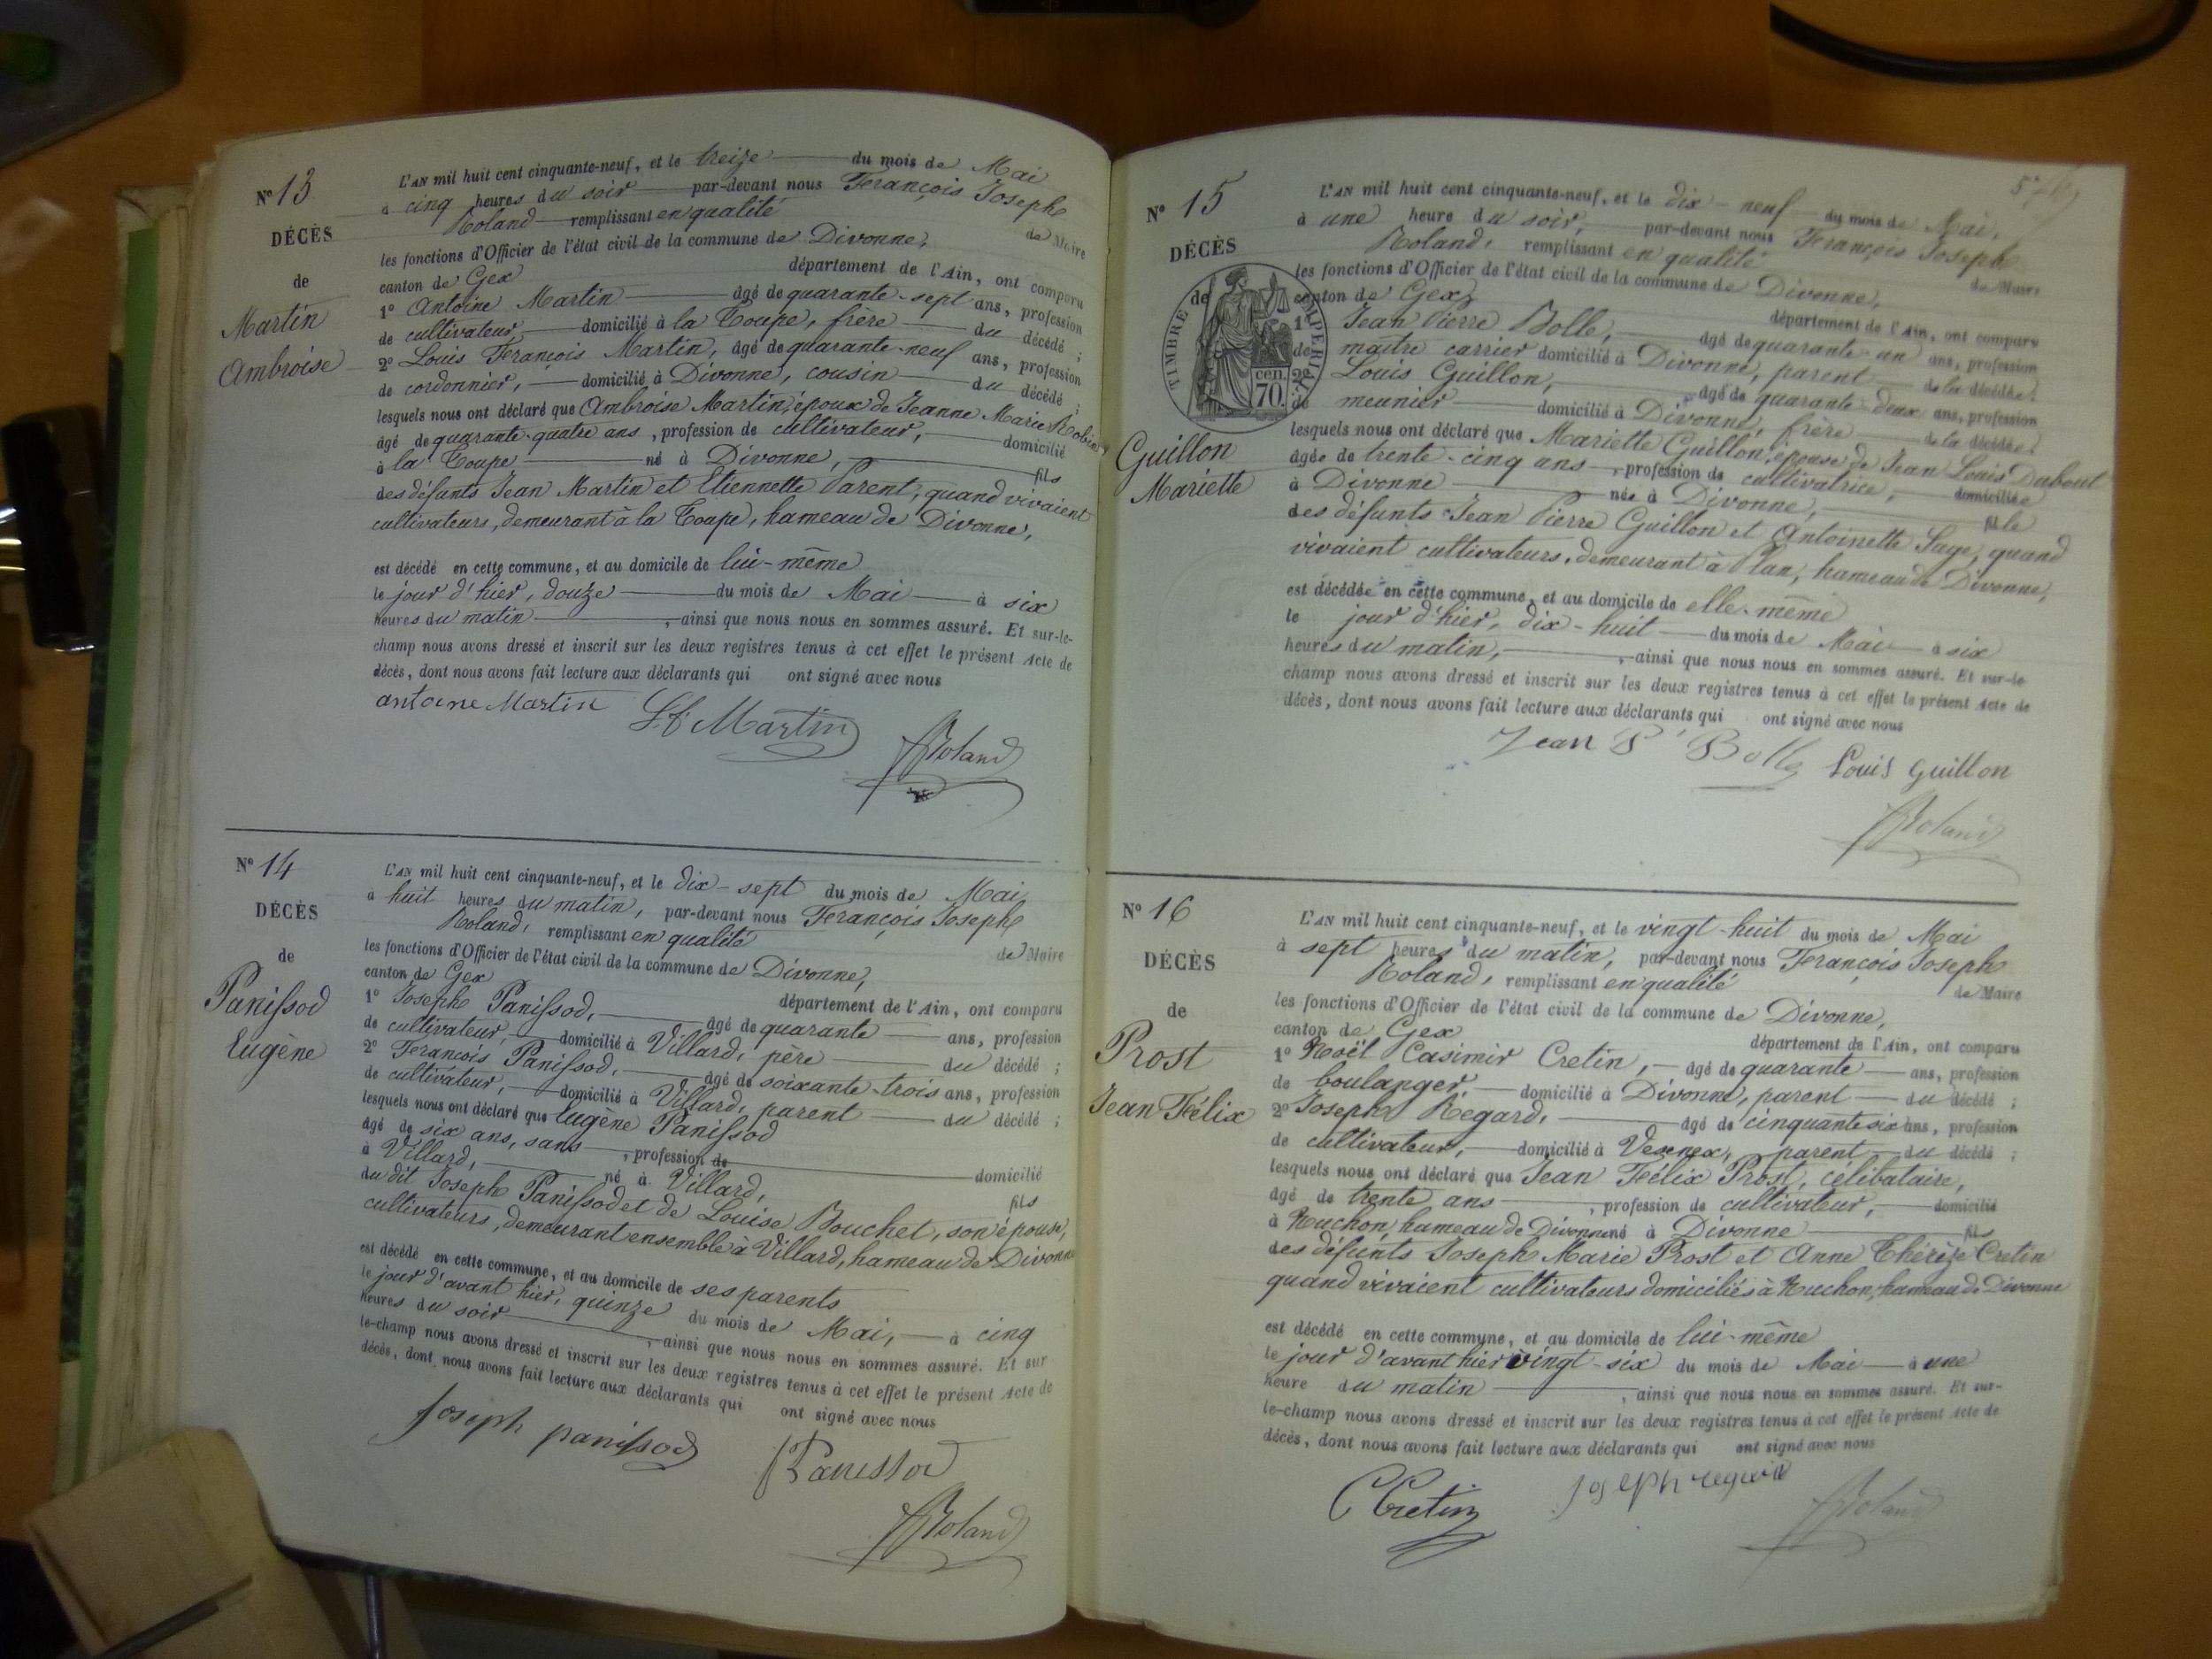 Nº 13
DÉCÈS
de
Martin
Ambroise
L'AN mil huit cent cinquante-neuf, et le treize du mois de Mai
à cinq heures du soir par-devant nous François Joseph
Roland remplissant en qualité de Maire
les fonctions d'Officier de l'état civil de la commune de Divonne,
canton de Gex département de l'Ain, ont comparu
1º Antoine Martin âgé de quarante-sept ans, profession
de cultivateur domicilié à la Coupe, frère du décédé ;
2º Louis François Martin, âgé de quarante-neuf ans, profession
de cordonnier, domicilié à Divonne, cousin du décédé ;
lesquels nous ont déclaré que Ambroise Martin, époux de Jeanne Marie
âgé de quarante-quatre ans, profession de cultivateur, domicilié
à la Coupe né à Divonne, fils
des défunts Jean Martin et Etiennette Parent, quand vivaient
cultivateurs, demeurant à la Coupe, hameau de Divonne,
est décédé en cette commune, et au domicile de lui-même
le jour d'hier, douze du mois de Mai à six
heures du matin, ainsi que nous nous en sommes assuré. Et sur-le-
champ nous avons dressé et inscrit sur les deux registres tenus à cet effet le présent Acte de
décès, dont nous avons fait lecture aux déclarants qui ont signé avec nous
antoine Martin L f Martin
Roland
Nº 14
DÉCÈS
de
Panissod
Eugène
L'AN mil huit cent cinquante-neuf, et le dix-sept du mois de Mai
à huit heures du matin, par-devant nous François Joseph
Roland, remplissant en qualité de Maire
les fonctions d'Officier de l'état civil de la commune de Divonne,
canton de Gex département de l'Ain, ont comparu
1º Joseph Panissod, âgé de quarante ans, profession
de cultivateur, domicilié à Villard, père du décédé ;
2º François Panissod, âgé de soixante-trois ans, profession
de cultivateur, domicilié à Villard, parent du décédé ;
lesquels nous ont déclaré que Eugène Panissod
âgé de six ans, sans, profession de domicilié
à Villard, né à Villard, fils
du dit Joseph Panissod et de Louise Bouchet, son épouse,
cultivateurs, demeurant ensemble à Villard, hameau de Divonne
est décédé en cette commune, et au domicile de ses parents
le jour d'avant hier, quinze du mois de Mai, à cinq
heures du soir, ainsi que nous nous en sommes assuré. Et sur
le-champ nous avons dressé et inscrit sur les deux registres tenus à cet effet le présent Acte de
décès, dont nous avons fait lecture aux déclarants qui ont signé avec nous
Joseph panissod
Panissod
Roland
Nº 15
DÉCÈS
de
TIMBRE IMPERIAL
70 cen.
Guillon
Mariette
L'AN mil huit cent cinquante-neuf, et le dix-neuf du mois de Mai,
à une heure du soir, par-devant nous François Joseph
Roland, remplissant en qualité de Maire
les fonctions d'Officier de l'état civil de la commune de Divonne,
canton de Gex, département de l'Ain, ont comparu
1º Jean Pierre Bolle, âgé de quarante-un ans, profession
de maître carrier domicilié à Divonne, parent de la décédée ;
2º Louis Guillon, âgé de quarante-deux ans, profession
de meunier domicilié à Divonne, frère de la décédée ;
lesquels nous ont déclaré que Mariette Guillon, épouse de Jean Louis Dubout
âgée de trente-cinq ans, profession de cultivatrice, domiciliée
à Divonne née à Divonne, fille
des défunts Jean Pierre Guillon et Antoinette Sage, quand
vivaient cultivateurs, demeurant à Plan, hameau de Divonne,
est décédée en cette commune, et au domicile de elle-même
le jour d'hier, dix-huit du mois de Mai à six
heures du matin, ainsi que nous nous en sommes assuré. Et sur-le-
champ nous avons dressé et inscrit sur les deux registres tenus à cet effet le présent Acte de
décès, dont nous avons fait lecture aux déclarants qui ont signé avec nous
Jean P Bolle Louis Guillon
Roland
Nº 16
DÉCÈS
de
Prost
Jean Félix
L'AN mil huit cent cinquante-neuf, et le vingt-huit du mois de Mai
à sept heures du matin, par-devant nous François Joseph
Roland, remplissant en qualité de Maire
les fonctions d'Officier de l'état civil de la commune de Divonne,
canton de Gex département de l'Ain, ont comparu
1º Noël Casimir Cretin, âgé de quarante ans, profession
de boulanger, domicilié à Divonne, parent du décédé ;
2º Joseph Regard, âgé de cinquante six ans, profession
de cultivateur, domicilié à Vesenex, parent du décédé ;
lesquels nous ont déclaré que Jean Félix Prost, célibataire,
âgé de trente ans, profession de cultivateur, domicilié
à Ruchon, hameau de Divonne né à Divonne fils
des défunts Joseph Marie Prost et Anne Thérèze Cretin
quand vivaient cultivateurs domiciliés à Ruchon, hameau de Divonne
est décédé en cette commune, et au domicile de lui-même
le jour d'avant hier vingt-six du mois de Mai à une
heure du matin, ainsi que nous nous en sommes assuré. Et sur-
le-champ nous avons dressé et inscrit sur les deux registres tenus à cet effet le présent Acte de
décès, dont nous avons fait lecture aux déclarants qui ont signé avec nous
C Cretin Joseph regard
Roland